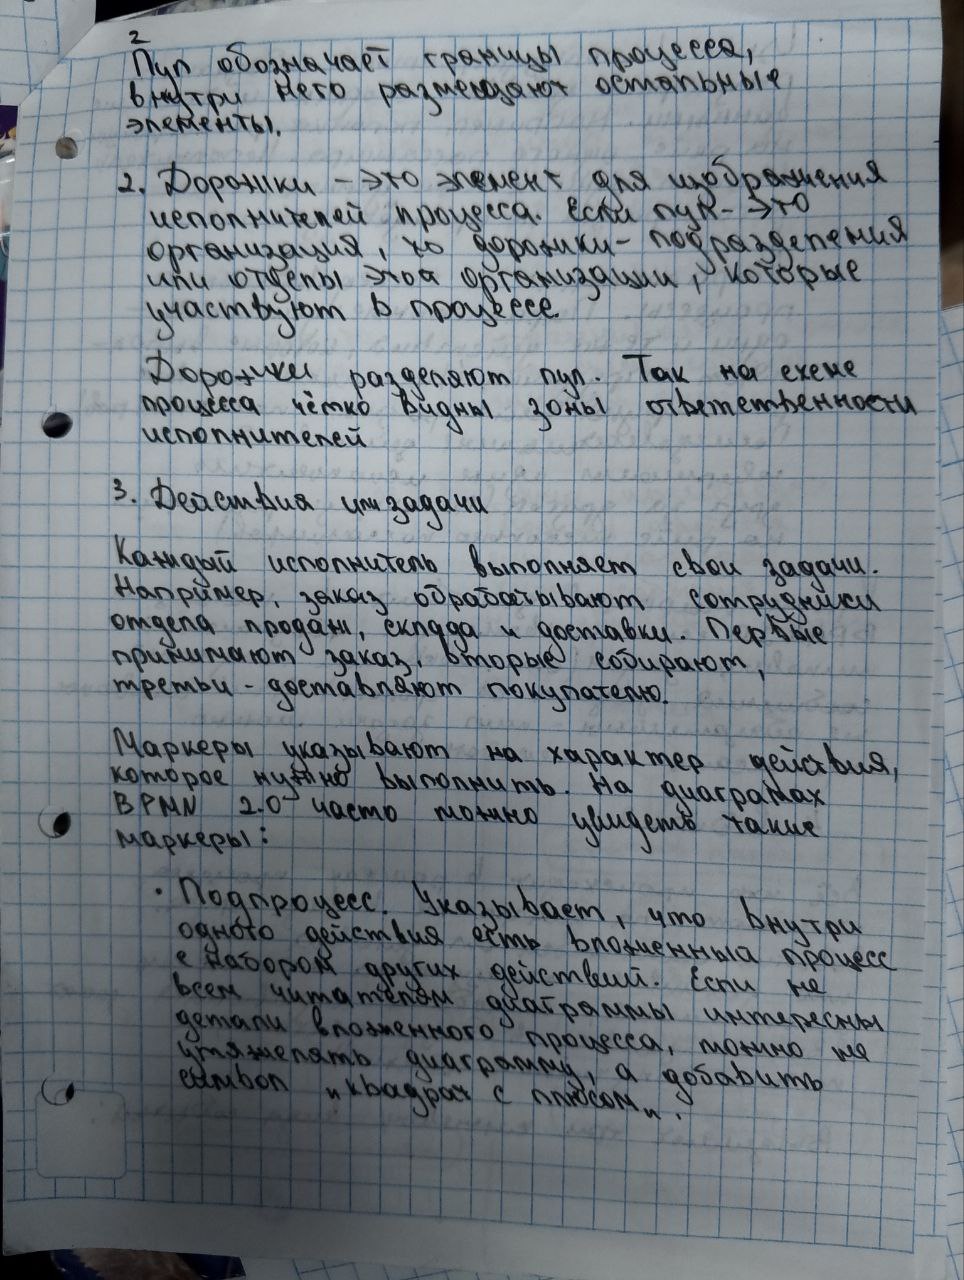 2
Пул обозначает границы процесса,
внутри него размещают остальные
элементы.
2. Дорожки - это элемент для изображения
исполнителей процесса. Если пул - это
организация, то дорожки - подразделения
или отделы этой организации, которые
участвуют в процессе.
Дорожки разделяют пул. Так на схеме
процесса чётко видны зоны ответственности
исполнителей
3. Действия или задачи
Каждый исполнитель выполняет свои задачи.
Например, заказ обрабатывают сотрудники
отдела продаж, склада и доставки. Первые
принимают заказ, вторые собирают,
третьи - доставляют покупателю.
Маркеры указывают на характер действия,
которое нужно выполнить. На диаграмах
BPMN 2.0 часто можно увидеть такие
маркеры:
• Подпроцесс. Указывает, что внутри
одного действия есть вложенный процесс
с набором других действий. Если не
всем читателям диаграммы интересны
детали вложенного процесса, можно не
утяжелять диаграмму, а добавить
символ "квадрат с плюсом".